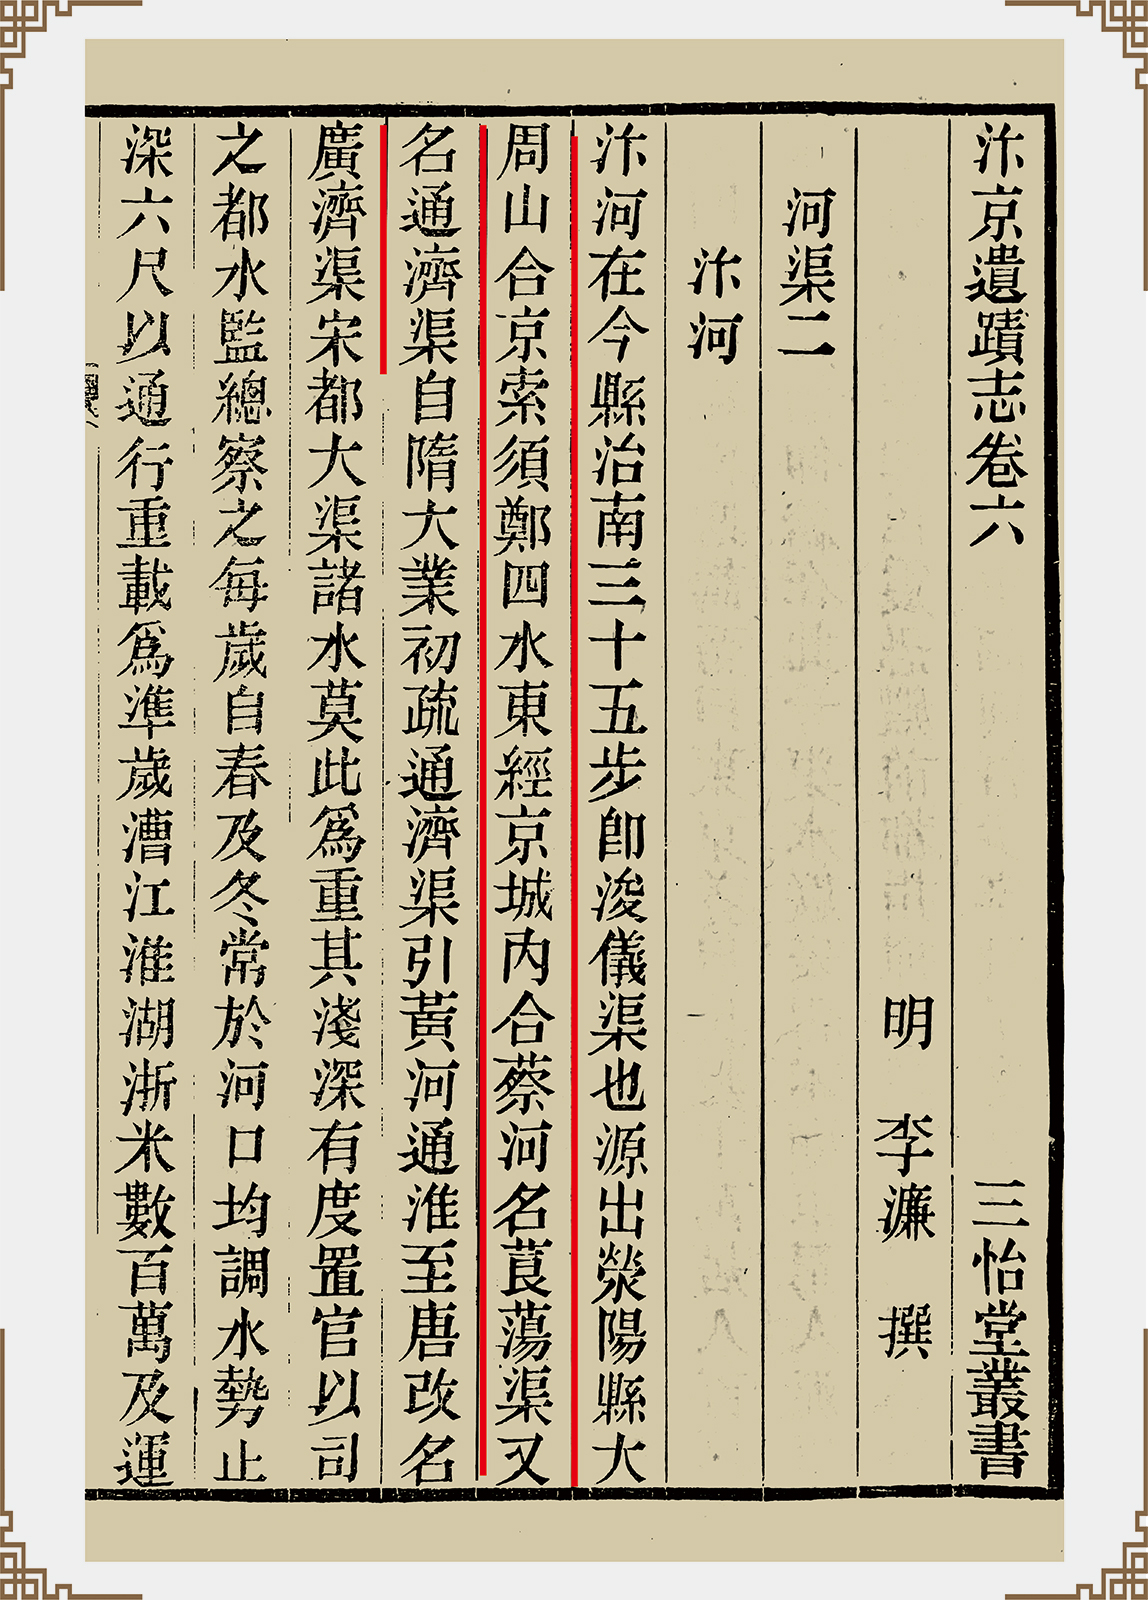 汴京遺蹟志卷六 三怡堂叢書
明 李濂 撰
河渠二
汴河
汴河在今縣治南三十五步卽浚儀渠也源出滎陽縣大
周山合京索須鄭四水東經京城内合蔡河名莨蕩渠又
名通濟渠自隋大業初疏通濟渠引黃河通淮至唐改名
廣濟渠宋都大渠諸水莫此爲重其淺深有度置官以司
之都水監總察之每歲自春及冬常於河口均調水勢止
深六尺以通行重載爲準歲漕江淮湖浙米數百萬及運